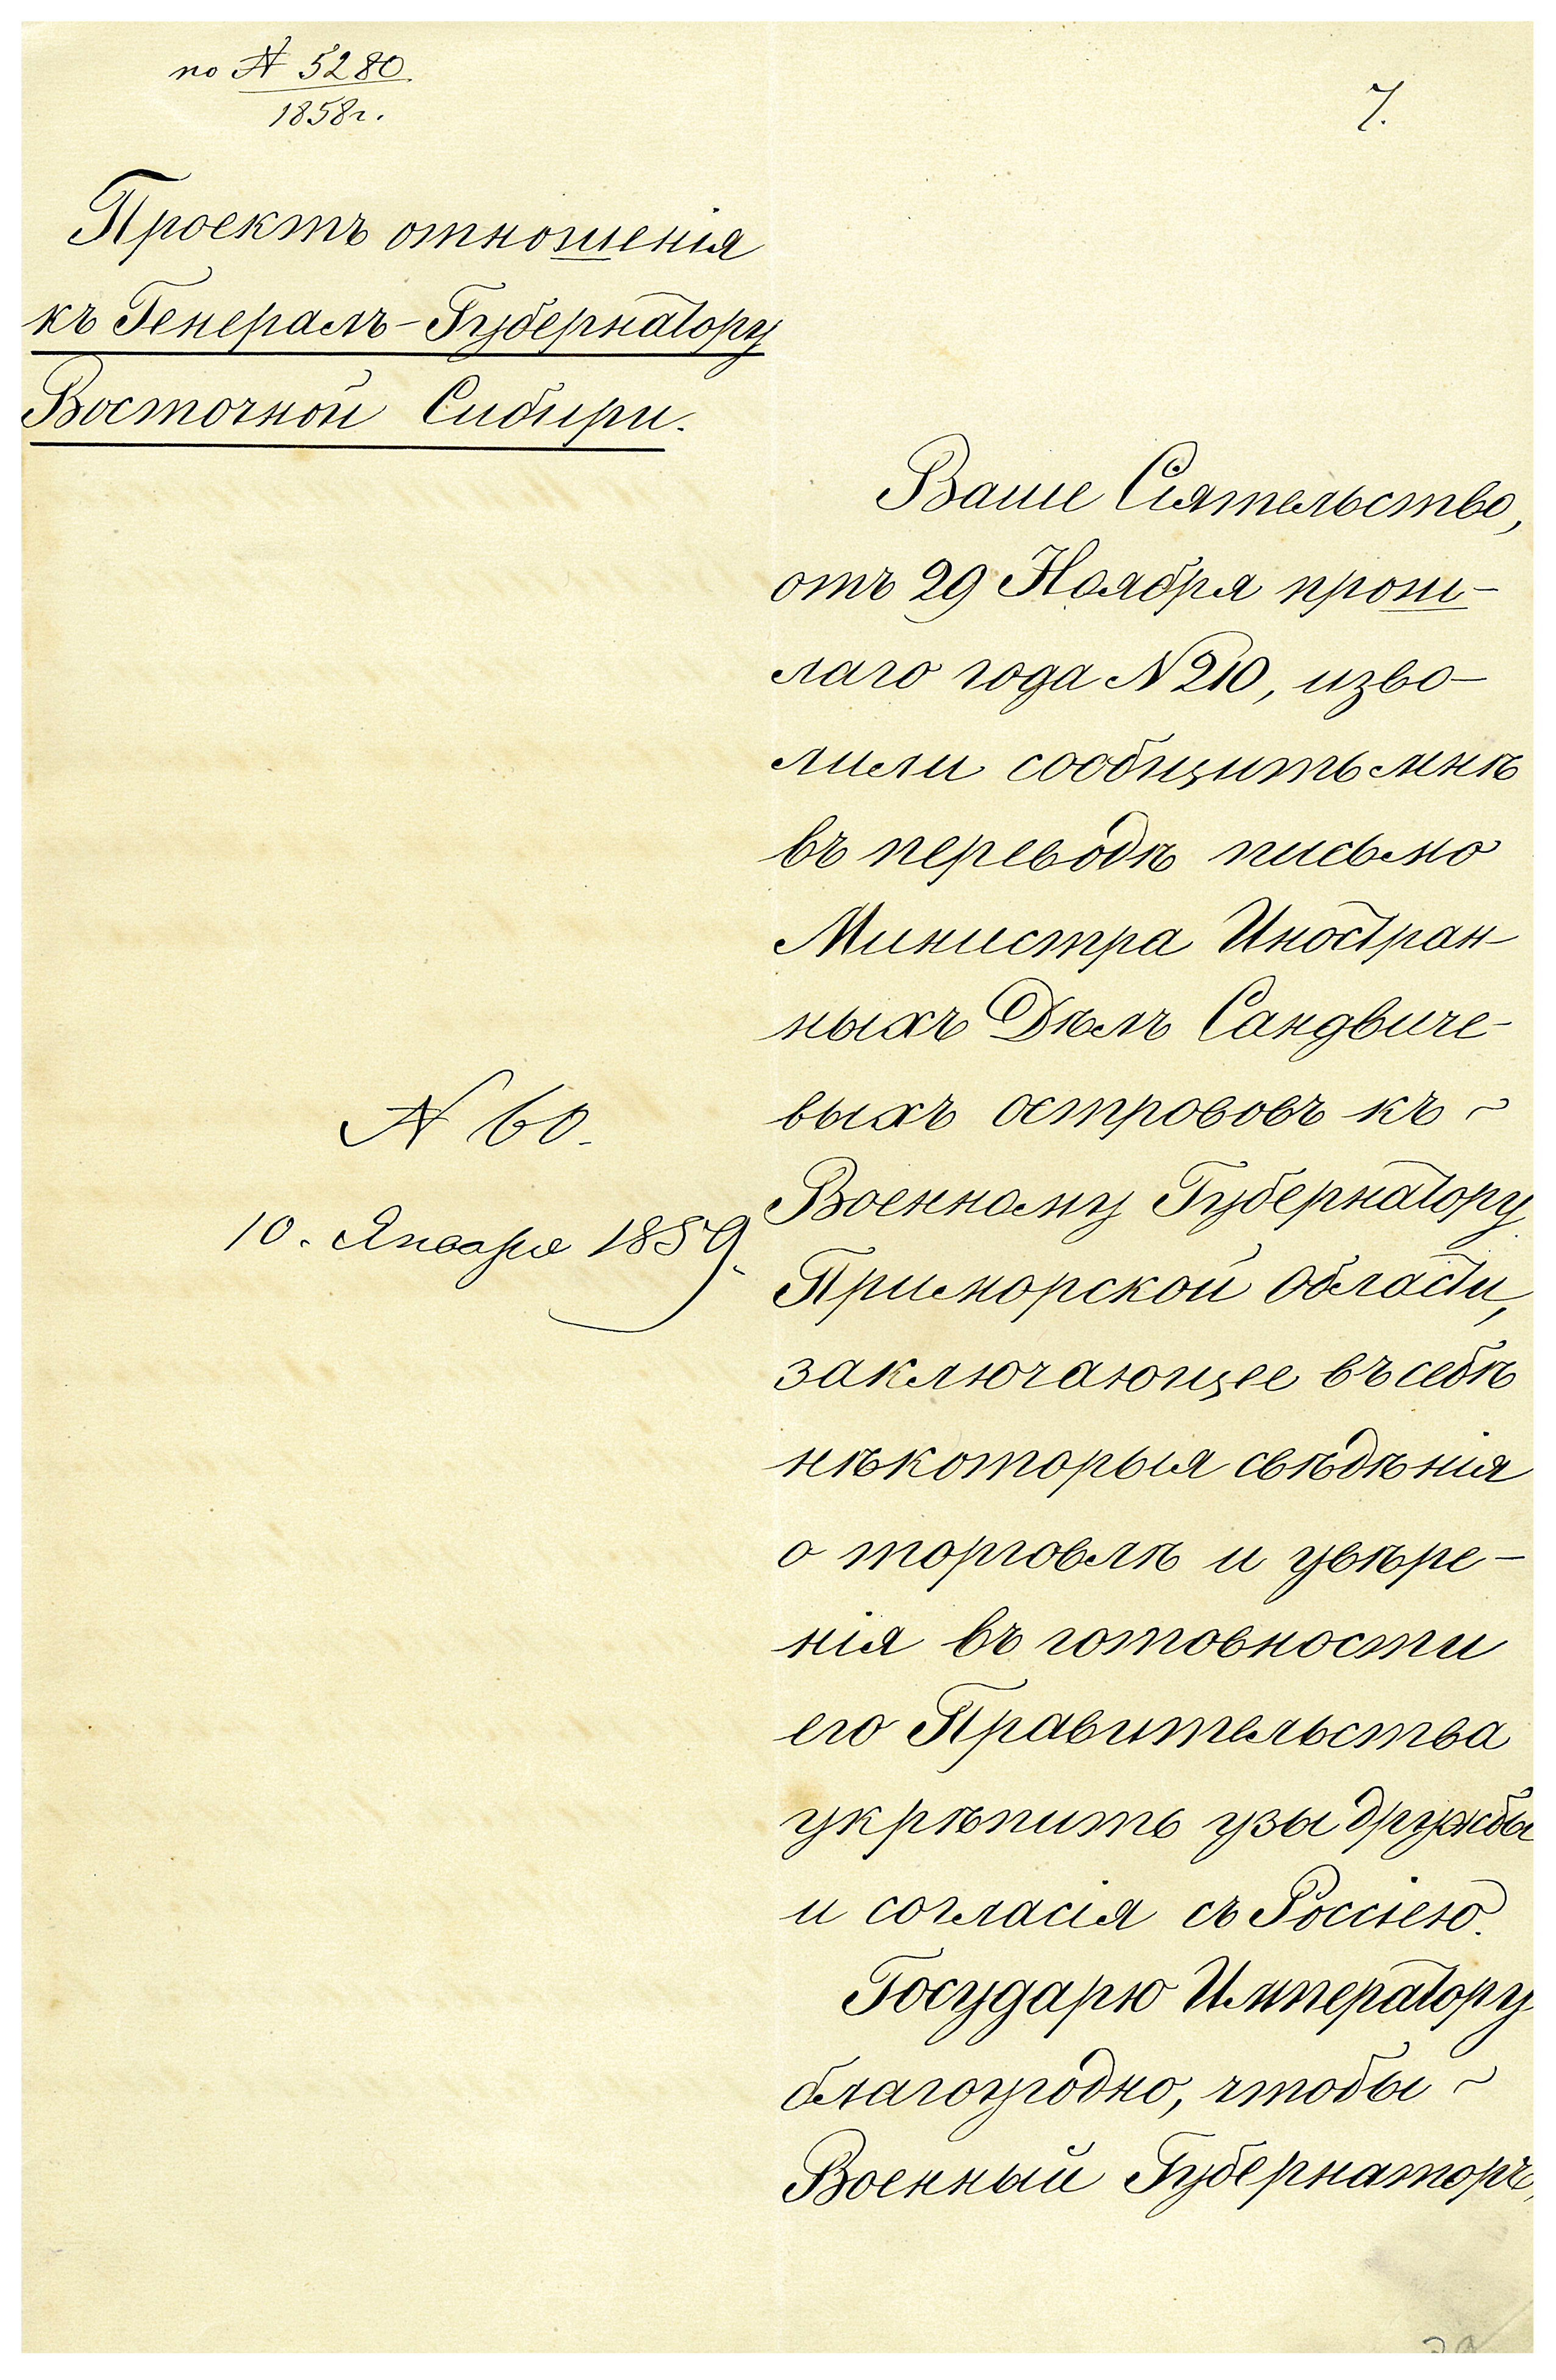 по № 5280
1858г.
7.
Проектъ отношенія
къ Генералъ-Губернатору
Восточной Сибири.
Ваше Сіятельство,
отъ 29 Ноября прош-
лаго года № 210, изво-
лили сообщить мнѣ
въ переводѣ письмо
Министра Иностран-
ныхъ Дѣлъ Сандвиче-
выхъ острововъ къ ~
Военному Губернатору
Приморской Области,
заключающее въ себѣ
нѣкоторыя свѣдѣнія
о торговлѣ и увѣре-
нія въ готовности
его Правительства
укрѣпить узы дружбы
и согласія съ Россіею.
Государю Императору
благоугодно, чтобы ~
Военный Губернаторъ,
№ 60.
10. Января 1859.